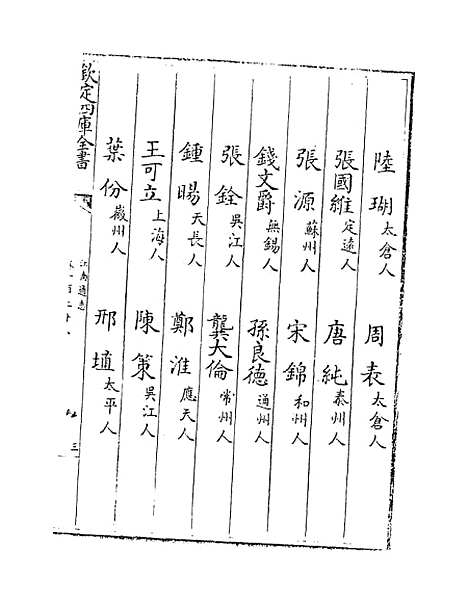 陸瑚太倉人 周表太倉人
張國維定遠人 唐純泰州人
張源蘇州人 宋錦和州人
錢文爵無錫人 孫良德通州人
張銓吳江人 龔大倫常州人
鍾暘天長人 鄭淮應天人
王可立上海人 陳策吳江人
葉份徽州人 邢埴太平人
欽定四庫全書
江南通志
三